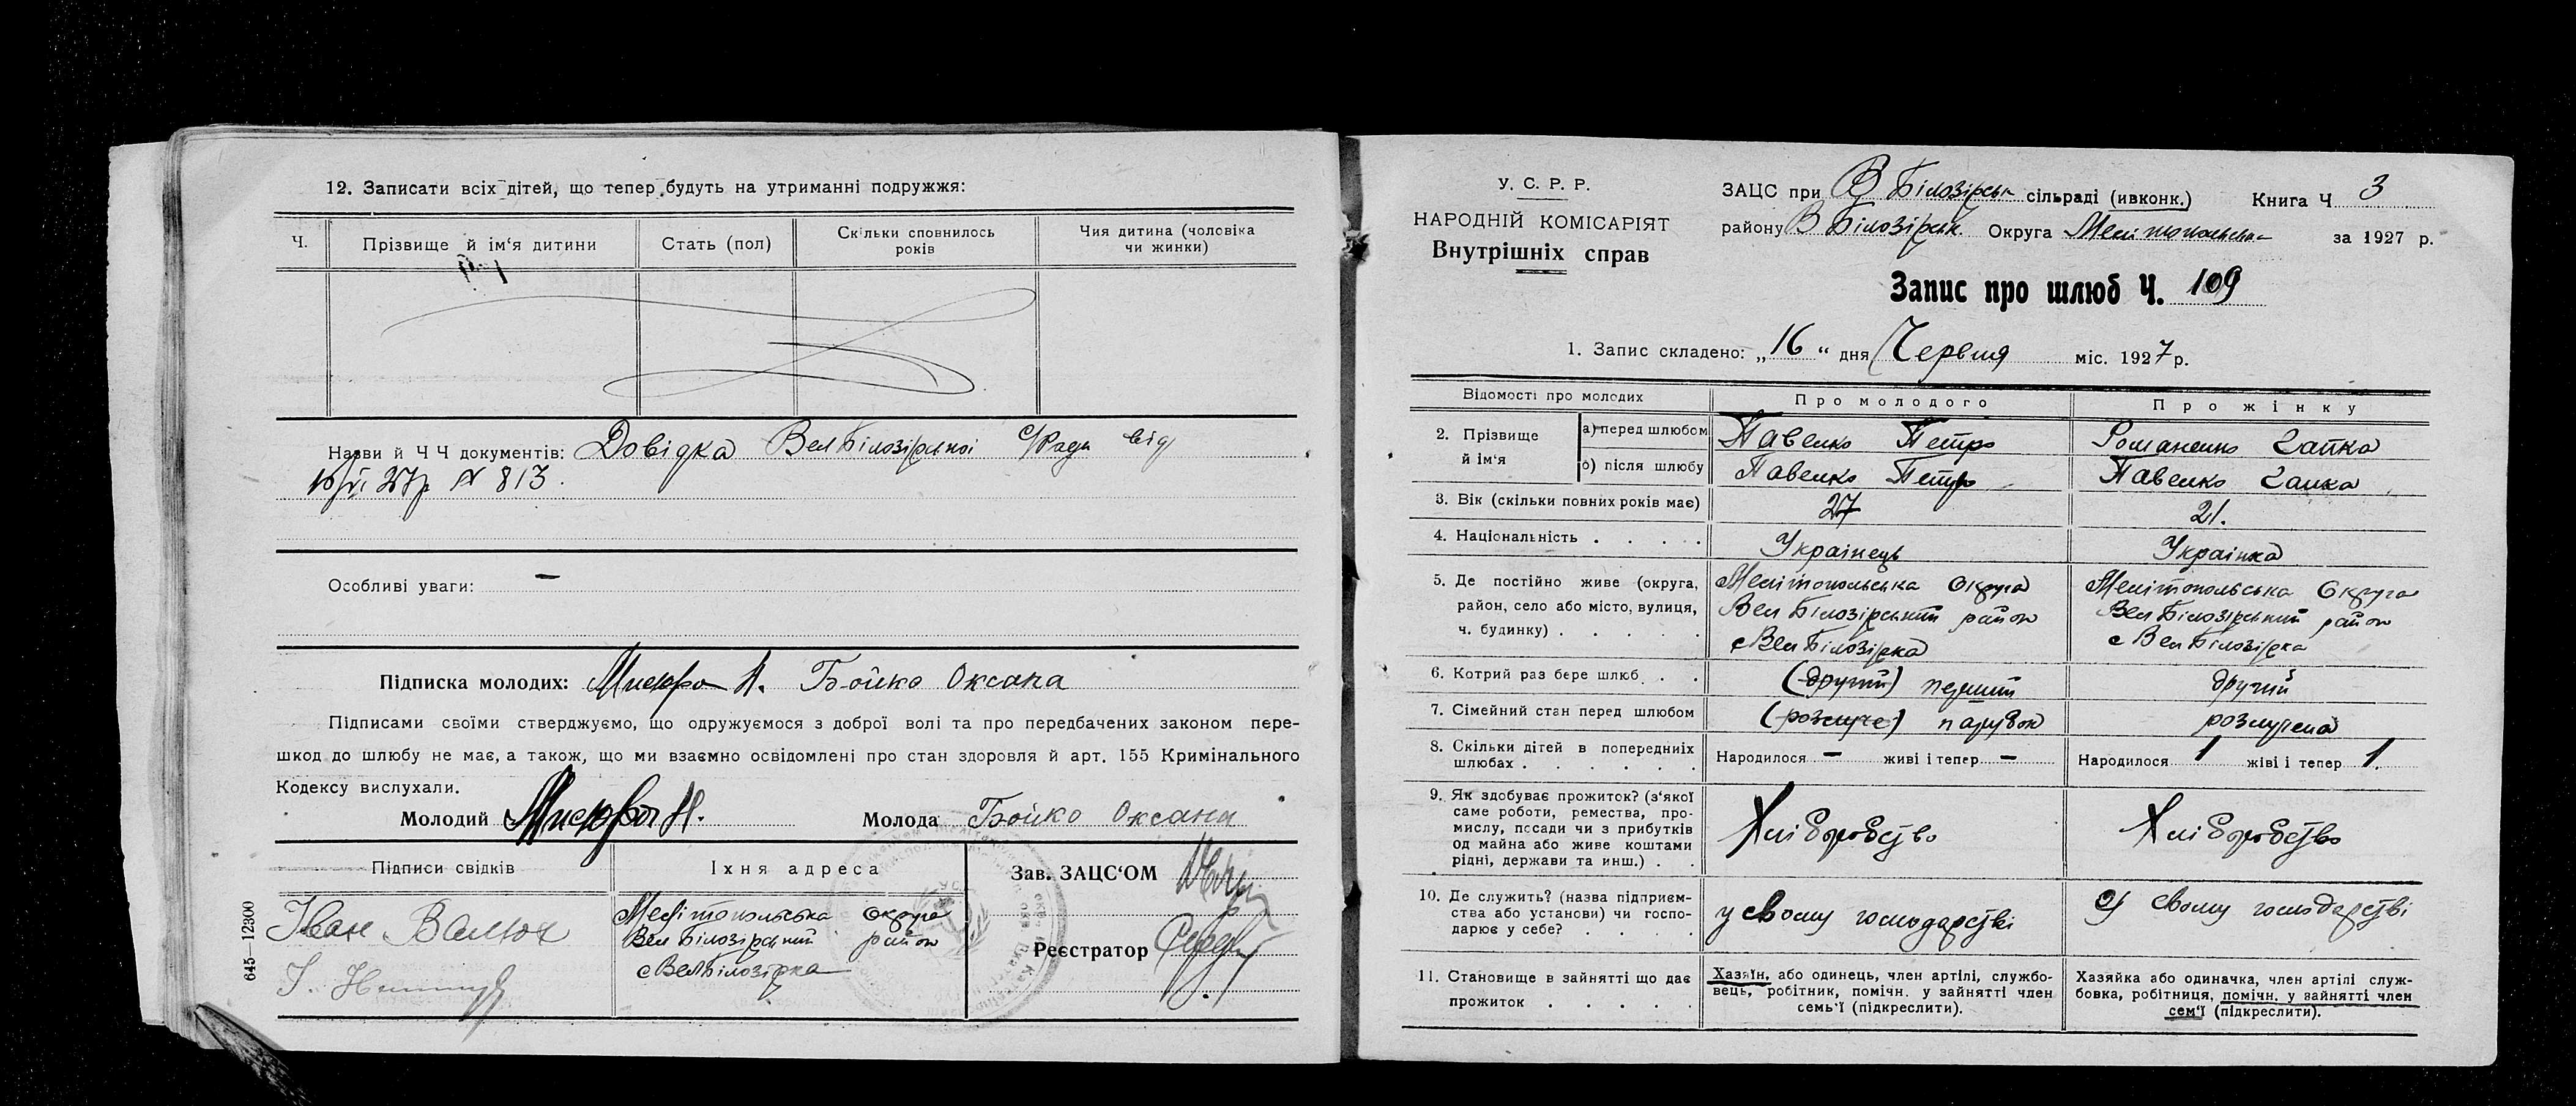 12. Записати всіх дітей, що тепер будуть на утриманні подружжя:
Ч.
Прізвище й ім'я дитини
Стать (пол)
Скільки сповнилось
років
Чия дитина (чоловіка
чи жинки)
Назви й Ч Ч документів: Довідка Вел Білозірської С/Ради від
27р N 813.
Особливі уваги: —
Підписка молодих: Бойко Оксана
Підписами своїми стверджуємо, що одружуємося з доброї волі та про передбачених законом пере-
шкод до шлюбу не має, а також, що ми взаємно освідомлені про стан здоровля й арт. 155 Кримінального
Кодексу вислухали.
Молодий
Молода Бойко Оксана
Підписи свідків
Їхня адреса
Іван
Мелітопольська округа
Вел Білозірський район
с Вел Білозірка
Зав. ЗАЦС'ОМ
Реєстратор
645—12300
У. С. Р. Р.
НАРОДНІЙ КОМІСАРІЯТ
Внутрішніх справ
ЗАЦС при В Білозірськ сільраді (ивконк.) Книга Ч 3
району В Білозірськ. Округа Мелітопольськ за 1927 р.
Запис про шлюб Ч. 109
1. Запис складено: „16" дня Червня міс. 1927 р.
Відомості про молодих
Про молодого
Про жінку
2. Прізвище
й ім'я
а) перед шлюбом
Павелко Петро
Романенко Гапка
б) після шлюбу
Павелко Петро
Павелко Гапка
3. Вік (скільки повних років має)
27
21.
4. Національність . . . .
Українець
Українка
5. Де постійно живе (округа,
район, село або місто, вулиця,
ч. будинку) . . . . .
Мелітопольська Округа
Вел Білозірський район
с Вел Білозірка
Мелітопольська Округа
Вел Білозірський район
с Вел Білозірка
6. Котрий раз бере шлюб . .
(другий) перший
другий
7. Сімейний стан перед шлюбом
(розлуче) парубок
розлучена
8. Скільки дітей в попередніх
шлюбах . . . . . .
Народилося — живі і тепер —
Народилося 1 жіві і тепер 1.
9. Як здобуває прожиток? (з'якої
саме роботи, ремества, про-
мислу, посади чи з прибутків
од майна або живе коштами
рідні, держави та инш.) . .
Хліборобство
Хліборобство
10. Де служить? (назва підприєм-
ства або установи) чи госпо-
дарює у себе? . . . .
у свому господарстві
у свому господарстві
11. Становище в зайнятті що дає
прожиток . . . . .
Хазяїн, або одинець, член артілі, службо-
вець, робітник, помічн. у зайнятті член
семь'ї (підкреслити).
Хазяйка або одиначка, член артілі служ-
бовка, робітниця, помічн. у зайнятті член
сем'ї (підкреслити).